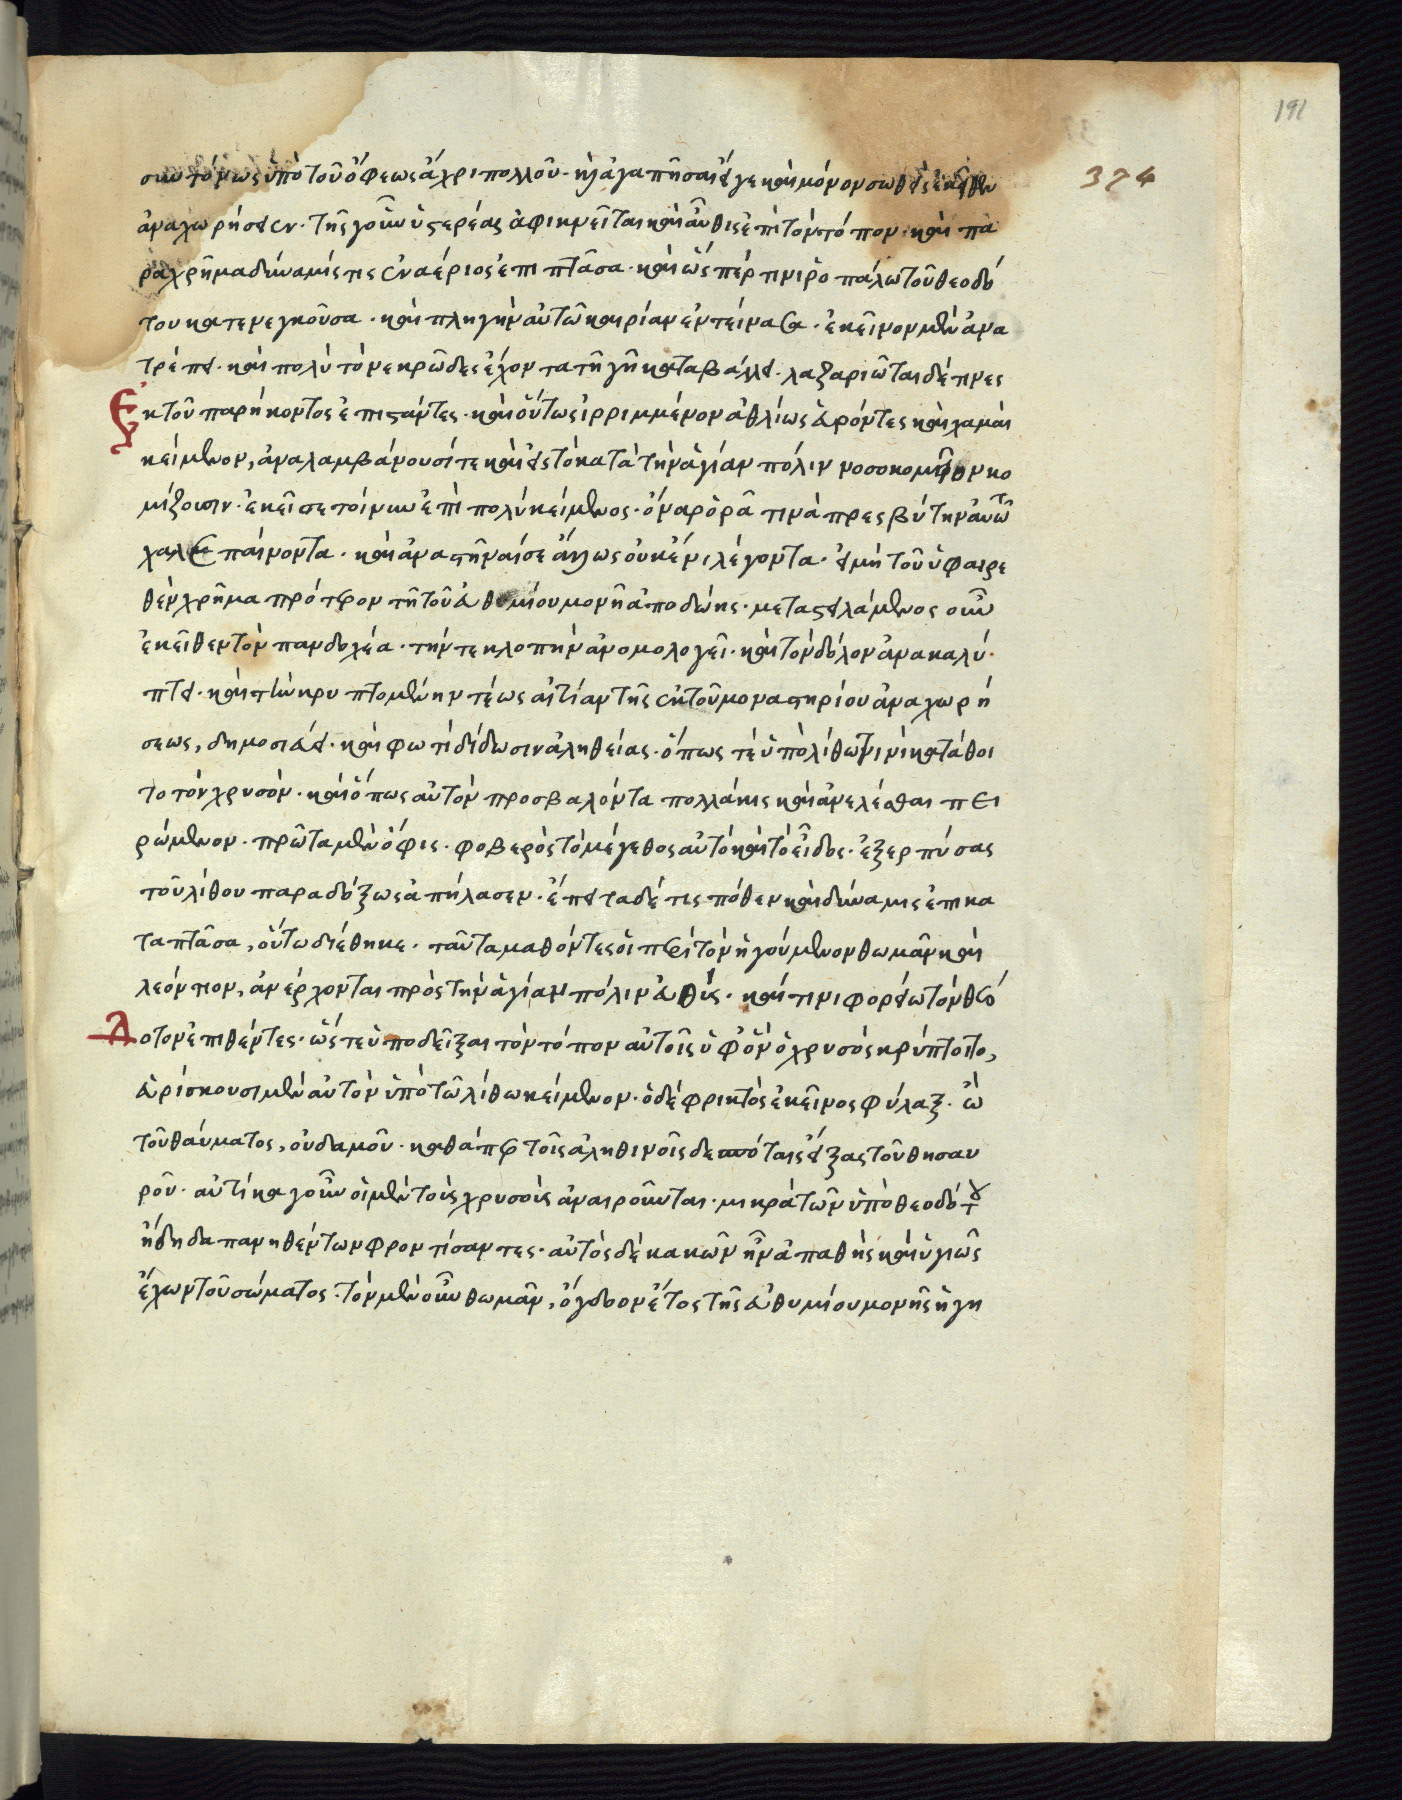 191
324
συντόμως ὑπὸ τοῦ ὄφεως ἄχρι πολλοῦ· κ(αὶ) ἀγαπῆσαι εἴγε καὶ μόνον σωθεὶς ἐκεῖθεν
ἀναχωρήσειεν. τῆς γοῦν ὑστερέας ἀφικνεῖται καὶ αὖθις ἐπὶ τὸν τόπον. καὶ πα
ραχρῆμα δύναμίς τις ἐναέριος ἐπιπτᾶσα. καὶ ὥσπέρ τινι ῥοπάλω τοῦ θεοδό
του κατενεγκοῦσα. καὶ πληγὴν αὐτῶ καιρίαν ἐντείνασα. ἐκεῖνον μὲν ἀνα
τρέπει. καὶ πολὺ τὸ νεκρῶδες ἔχοντα τῆ γῆ καταβάλλει. λαζαριῶται δέ τινες
ἐκ τοῦ παρήκοντος ἐπιστάντες. καὶ οὕτως ἐρριμμένον ἀθλίως εὑρόντες καὶ χαμαὶ
κείμενον, ἀναλαμβάνουσί τε καὶ εἰς τὸ κατὰ τὴν ἁγίαν πόλιν νοσοκομεῖον κο
μίζουσιν. ἐκεῖσε τοίνυν ἐπὶ πολὺ κείμενος. ὄναρ ὁρᾶ τινὰ πρεσβύτην αὐτῶ
χαλεπαίνοντα. καὶ ἀναστῆναί σε ἄλλως οὐκ ἔνι λέγοντα. εἰ μὴ τοῦ ὑφαιρε
θὲν χρῆμα πρότερον τῆ τοῦ εὐθυμίου μονῆ ἀποδώης. μεταστειλάμενος οὖν
ἐκεῖθεν τὸν πανδοχέα. τήν τε κλοπὴν ἀνομολογεῖ. καὶ τὸν δόλον ἀνακαλύ.
πτει. καὶ τὴν κρυπτομένην τέως αἰτίαν τῆς ἐκ τοῦ μοναστηρίου ἀναχωρή
σεως, δημοσιεύει. καὶ φωτὶ δίδωσιν ἀληθείας. ὅπως τὲ ὑπὸ λίθω τινὶ κατάθοι
το τὸν χρυσόν. καὶ ὅπως αὐτὸν προσβαλόντα πολλάκις καὶ ἀνελέσθαι πει
ρώμενον. πρῶτα μὲν ὄφις. φοβερὸς τὸ μέγεθος αὐτὸ καὶ τὸ εἶδος. ἐξερπύσας
τοῦ λίθου παραδόξως ἀπήλασεν. ἔπειτα δέ τις πόθεν καὶ δύναμις ἐπικα
ταπτᾶσα, οὕτω διέθηκε. ταῦτα μαθόντες οἱ περὶ τὸν ἡγούμενον θωμᾶν καὶ
λεόντιον, ἀνέρχονται πρὸς τὴν ἁγίαν πόλιν εὐθύς. καί τινι φορείω τὸν θεό
δοτον ἐπιθέντες. ὥστε ὑποδεῖξαι τὸν τόπον αὐτοῖς ὑφ' ὃν ὁ χρυσὸς κρύπτοιτο,
εὑρίσκουσι μὲν αὐτὸν ὑπὸ τῶ λίθω κείμενον. ὁ δὲ φρικτὸς ἐκεῖνος φύλαξ. ὢ
τοῦ θαύματος, οὐδαμοῦ. καθάπερ τοῖς ἀληθινοῖς δεσπόταις εἴξας τοῦ θησαυ
ροῦ. αὐτίκα γοῦν οἱ μὲν τοὺς χρυσοὺς ἀναιροῦνται. μικρὰ τῶν ὑπὸ θεοδότου
ἤδη δαπανηθέντων φροντίσαντες. αὐτὸς δὲ κακῶν ἦν ἀπαθὴς καὶ ὑγιῶς
ἔχων τοῦ σώματος. τὸν μὲν οὖν θωμᾶν, ὄγδοον ἔτος τῆς εὐθυμίου μονῆς ἡγη